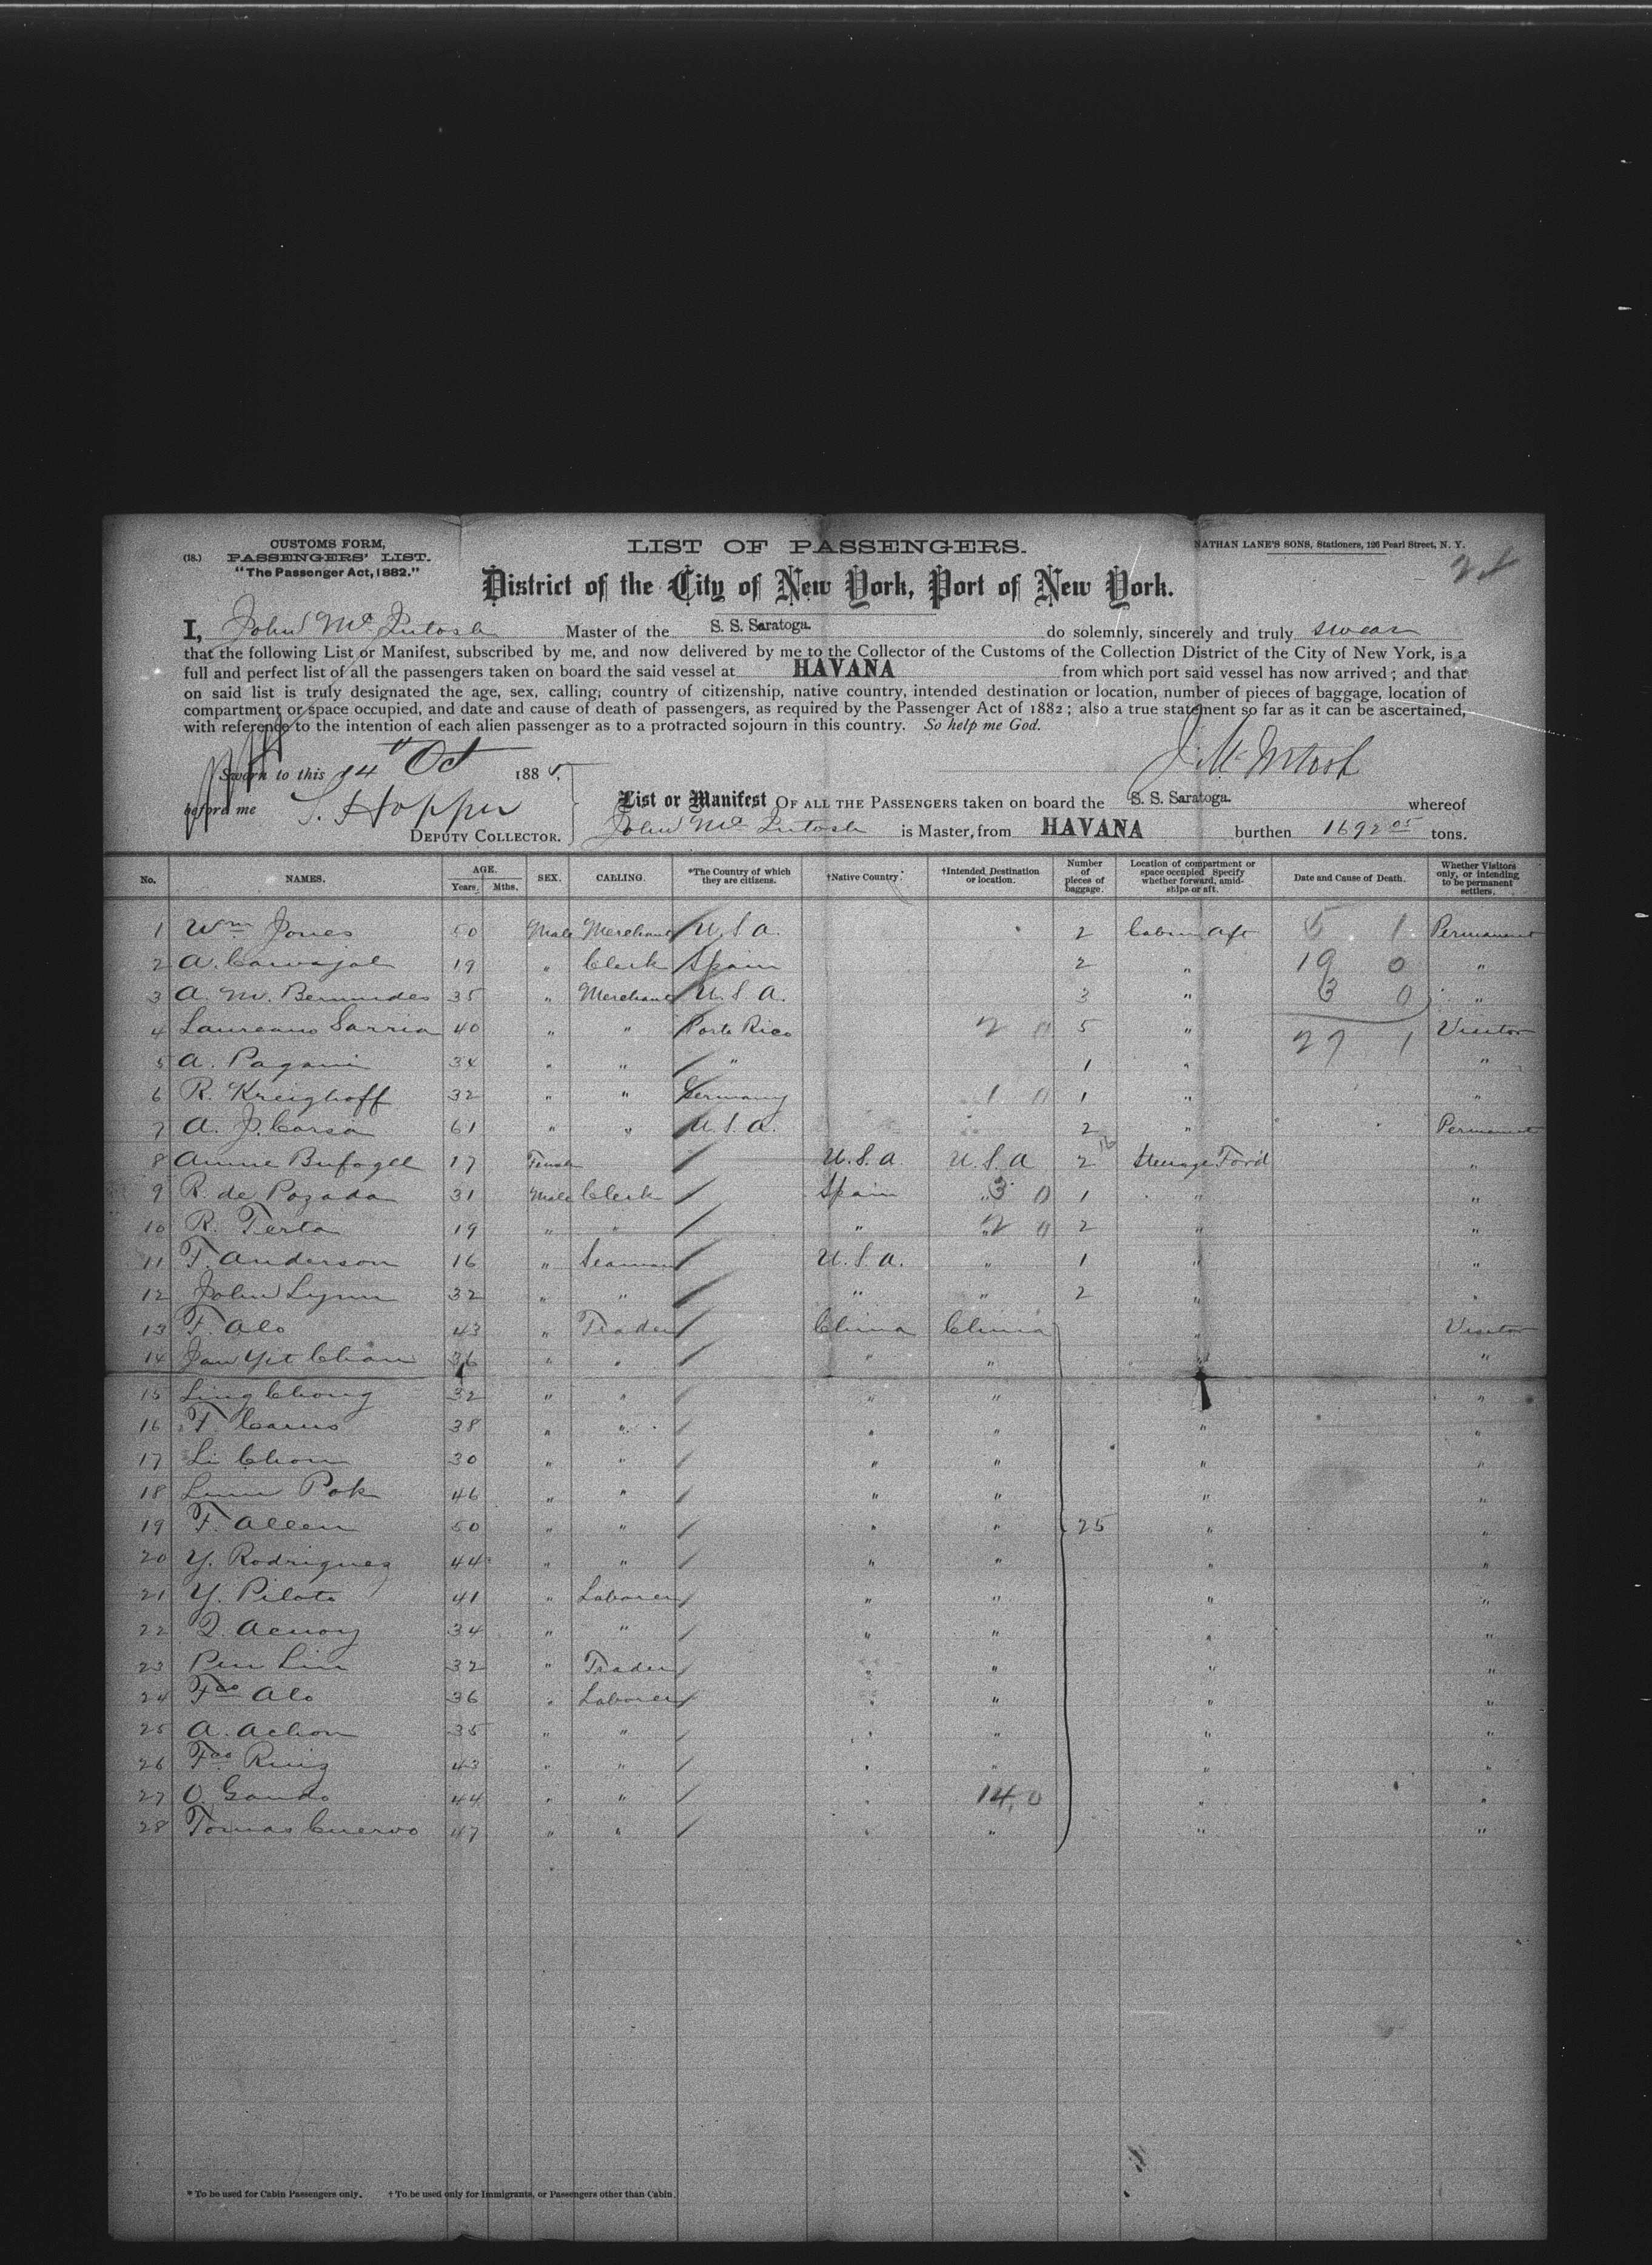 CUSTOMS FORM,
(18.) PASSENGERS' LIST.
"The Passenger Act, 1882."
LIST OF PASSENGERS.
NATHAN LANE'S SONS, Stationers, 126 Pearl Street, N. Y.
District of the City of New York, Port of New York.
I, John McIntosh Master of the S. S. Saratoga. do solemnly, sincerely and truly swear
that the following List or Manifest, subscribed by me, and now delivered by me to the Collector of the Customs of the Collection District of the City of New York, is a
full and perfect list of all the passengers taken on board the said vessel at HAVANA from which port said vessel has now arrived; and that
on said list is truly designated the age, sex, calling, country of citizenship, native country, intended destination or location, number of pieces of baggage, location of
compartment or space occupied, and date and cause of death of passengers, as required by the Passenger Act of 1882; also a true statement so far as it can be ascertained,
with reference to the intention of each alien passenger as to a protracted sojourn in this country. So help me God.
Sworn to this 14th Oct 188
J. McIntosh
before me S. Hopper
DEPUTY COLLECTOR.
List or Manifest OF ALL THE PASSENGERS taken on board the S. S. Saratoga. whereof
John McIntosh is Master, from HAVANA burthen 1692 05 tons.
No. NAMES. AGE. Years. Mths. SEX. CALLING. *The Country of which they are citizens. †Native Country. †Intended Destination or location. Number of pieces of baggage. Location of compartment or space occupied Specify whether forward, amidships or aft. Date and Cause of Death. Whether Visitors only, or intending to be permanent settlers.
1 Wm Jones 50 Male Merchant U.S.A. 2 Cabin Aft 5 1 Permanent
2 A. Carvajal 19 " Clerk Spain 2 " 19 0 "
3 A. M. Bermudes 35 " Merchant U.S.A. 3 " 3 0 "
4 Laureano Sarria 40 " " Porto Rico 2 0 5 " 27 1 Visitor
5 A. Pagani 34 " " " 1 " "
6 R. Kreighoff 32 " " Germany 1 0 1 " "
7 A. J. Corsa 61 " " U.S.A. 2 " Permanent
8 Annie Bufogle 17 Female U.S.A U.S.A 2 Steerage Ford "
9 R. de Pozada 31 Male Clerk Spain " 3 0 1 " "
10 R. Terta 19 " " " " 2 0 2 " "
11 F. Anderson 16 " Seaman U.S.A. " 1 " "
12 John Lynn 32 " " " " 2 " "
13 F. Alo 43 " Trader China China " Visitor
14 Jan Yet Chan 36 " " " " " "
15 Ling Chong 32 " " " " "
16 F. Carus 38 " " " " " "
17 Li Chon 30 " " " " " "
18 Lum Pok 46 " " " " " "
19 F. Allen 50 " " " " 25 " "
20 Y. Rodriguez 44 " " " " " "
21 Y. Piloto 41 " Laborer " " " "
22 Acuoy 34 " " " " " "
23 Pen Lin 32 " Trader " " " "
24 Fco Alo 36 " Laborer " " " "
25 A. Achon 35 " " " " " "
26 Fco Ruiz 43 " " " " " "
27 O. Gando 44 " " " 14 0 " "
28 Tomas Cuervo 47 " " " " " "
* To be used for Cabin Passengers only. † To be used only for Immigrants, or Passengers other than Cabin.